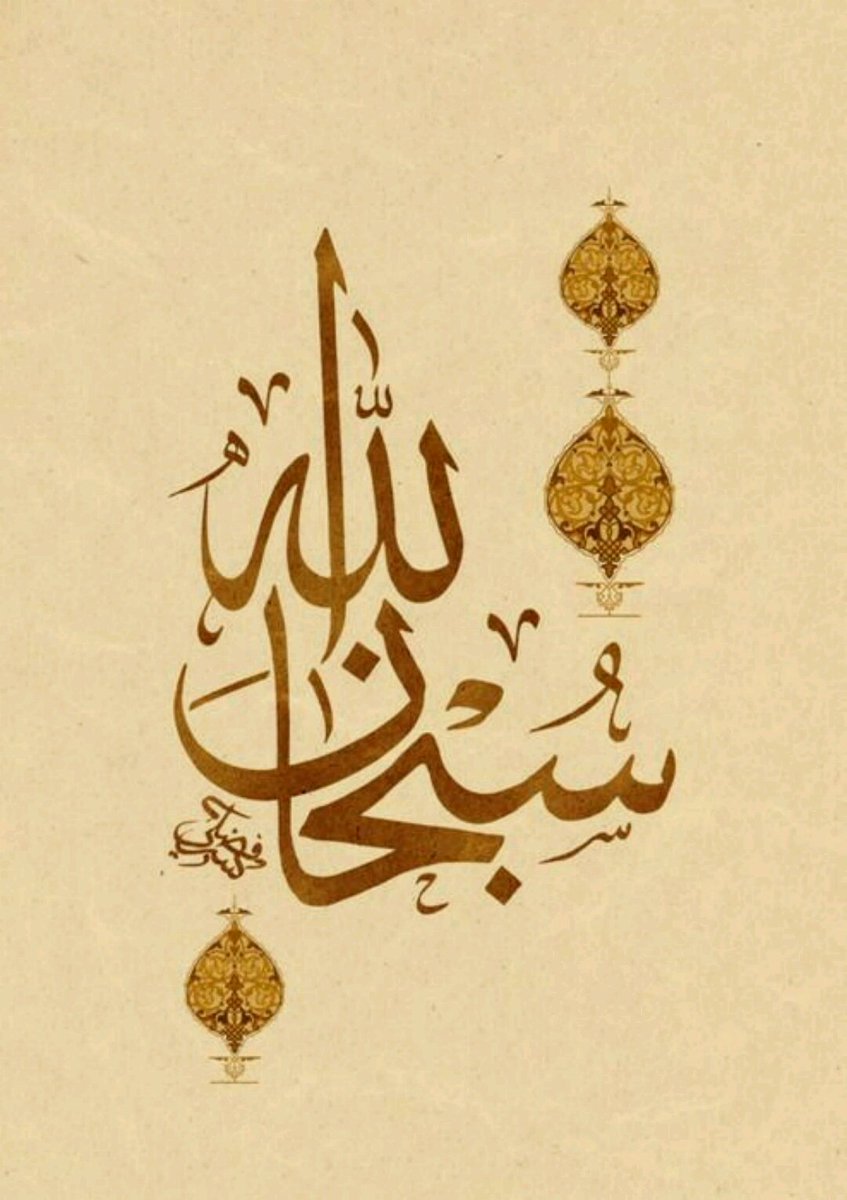 سُبْحَانَ اللّٰهُ